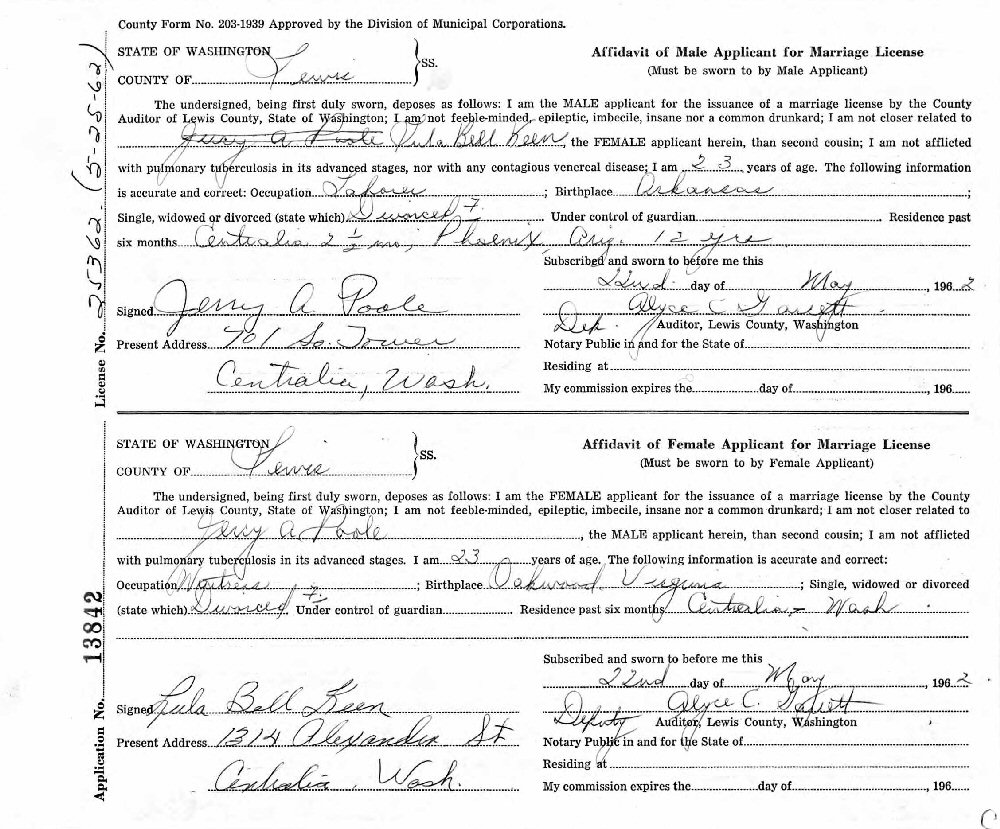 County Form No. 203-1939 Approved by the Division of Municipal Corporations.
STATE OF WASHINGTON
COUNTY OF Lewis } SS.
Affidavit of Male Applicant for Marriage License
(Must be sworn to by Male Applicant)
The undersigned, being first duly sworn, deposes as follows: I am the MALE applicant for the issuance of a marriage license by the County
Auditor of Lewis County, State of Washington; I am not feeble-minded, epileptic, imbecile, insane nor a common drunkard; I am not closer related to
Jerry A Poole Lula Bell Keen, the FEMALE applicant herein, than second cousin; I am not afflicted
with pulmonary tuberculosis in its advanced stages, nor with any contagious venereal disease; I am 23 years of age. The following information
is accurate and correct: Occupation Laborer; Birthplace Arkansas;
Single, widowed or divorced (state which) Divorced Under control of guardian Residence past
six months Centralia 2 1/2 mo, Phoenix, Ariz. 12 yrs
Subscribed and sworn to before me this
22nd day of May, 1962
Signed Jerry A Poole
Alyce C.
Dep. Auditor, Lewis County, Washington
Present Address 701 So. Tower
Notary Public in and for the State of
Residing at
Centralia, Wash.
My commission expires the day of, 196
License No. 25362 (5-25-62)
STATE OF WASHINGTON
COUNTY OF Lewis } SS.
Affidavit of Female Applicant for Marriage License
(Must be sworn to by Female Applicant)
The undersigned, being first duly sworn, deposes as follows: I am the FEMALE applicant for the issuance of a marriage license by the County
Auditor of Lewis County, State of Washington; I am not feeble-minded, epileptic, imbecile, insane nor a common drunkard; I am not closer related to
Jerry A Poole, the MALE applicant herein, than second cousin; I am not afflicted
with pulmonary tuberculosis in its advanced stages. I am 23 years of age. The following information is accurate and correct:
Occupation Waitress; Birthplace Oakwood, Virginia; Single, widowed or divorced
(state which) Divorced Under control of guardian Residence past six months Centralia, Wash.
Subscribed and sworn to before me this
22nd day of May, 1962
Signed Lula Bell Keen
Alyce C.
Deputy Auditor, Lewis County, Washington
Present Address 1314 Alexander St
Notary Public in and for the State of
Residing at
Centralia, Wash.
My commission expires the day of, 196
Application No. 13842